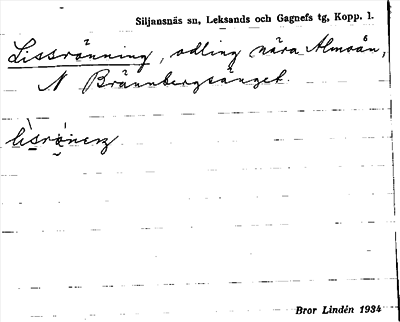 Siljansnäs sn, Leksands och Gagnefs tg, Kopp. l.
Lissrönning, odling nära Almoån,
N Brännbergsänget.
Bror Lindén 1934